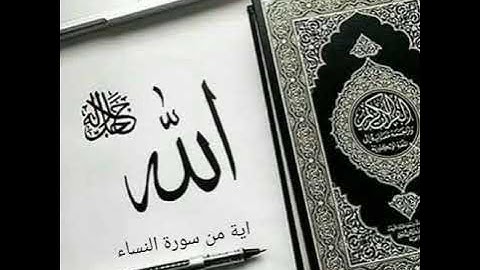 الله
جل جلاله
اية من سورة النساء
القرآن الكريم